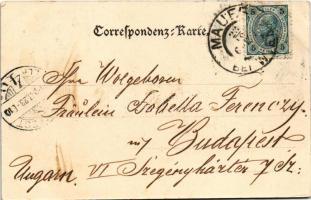 Correspondenz-Karte.
MAUER
Ihre Wolgeboren
Fräulein Isabella Ferenczy
in Budapest
Ungarn. VI Szegényházter 7 Sz: